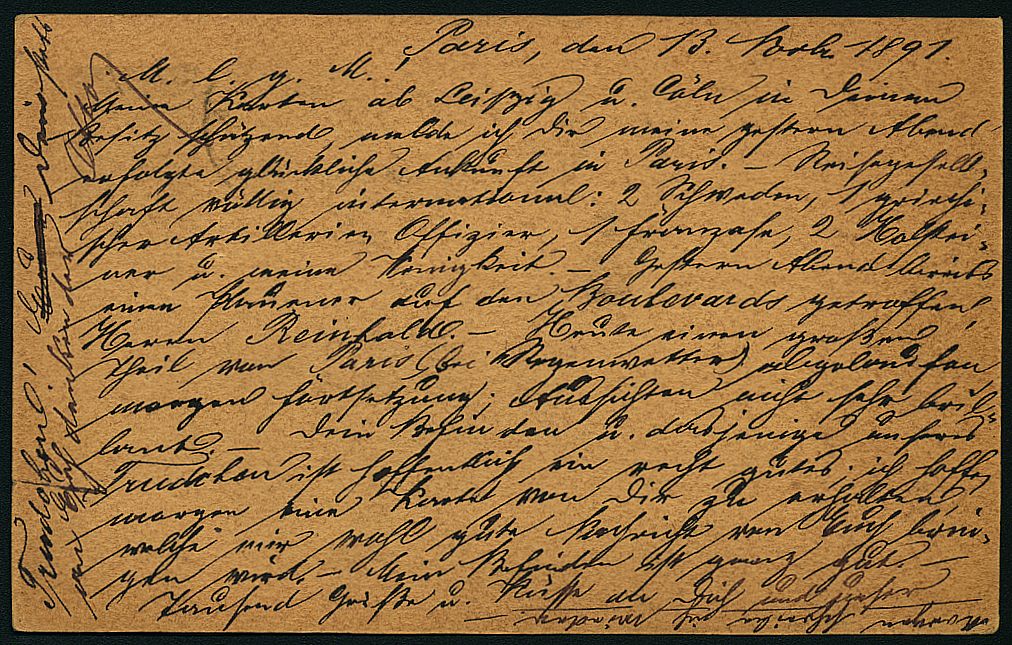 Paris, den 13. Novb. 1891.
M. l. g. M.,
Meine Karten ab Leipzig u. Cöln in Deinem
Besitz schätzend, melde ich Dir meine gestern Abend
erfolgte glückliche Ankunft in Paris. – Reisegesell-
schaft völlig international: 2 Schweden, 1 griechi-
scher Artillerie Offizier, 1 Franzose, 2 Holstei-
ner u. meine Wenigkeit. – Gestern Abend bereits
einen Plauener auf den Boulevards getroffen,
Herrn Reinhold. – Heute einen großen
Theil von Paris (bei Regenwetter) abgelaufen,
morgen Fortsetzung; Aussichten nicht sehr bril-
lant. – Dein Befinden u. dasjenige unseres
Trudchen ist hoffentlich ein recht gutes; ich hoffe,
morgen eine Karte von Dir zu erhalten,
welche mir wohl gute Nachricht von Euch brin-
gen wird. – Mein Befinden ist ganz gut. –
Tausend Grüße u. Küsse an Dich und unser
Trudchen!
Euch dankender
Otto